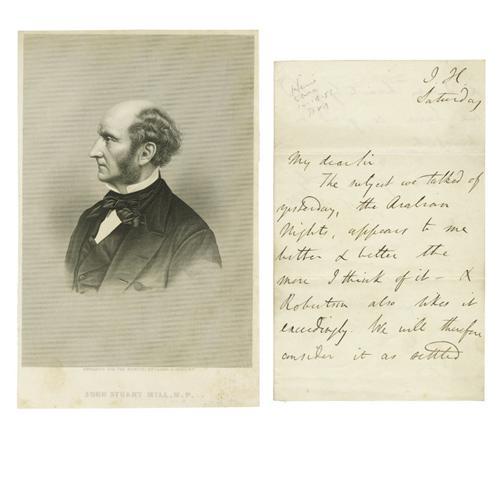 JOHN STUART MILL, M.P.
I. H.
Saturday
My dear Sir
The subject we talked of
yesterday, the Arabian
Nights, appears to me
better & better the
more I think of it – &
Robertson also likes it
exceedingly. We will therefore
consider it as settled